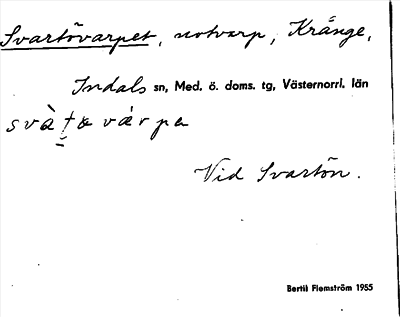 Svartövarpet, notvarp, Krånge,
Indals sn, Med. ö. doms. tg, Västernorrl. län
svàṭa várpa
Vid Svartön.
Bertil Flemström 1955